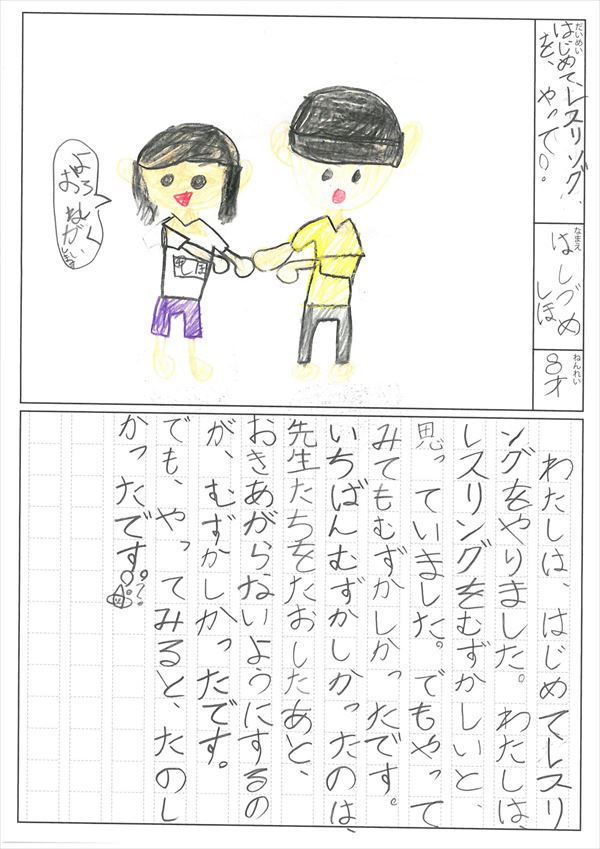 だいめい
はじめてレスリング
を、やって。
なまえ
はしづめ
しほ
ねんれい
8才
よろしく
おねがい
します
わたしは、はじめてレスリ
ングをやりました。わたしは、
レスリングをむずかしいと、
思っていました。でもやって
みてもむずかしかったです。
いちばんむずかしかったのは、
先生たちをたおしたあと、
おきあがらないようにするの
が、むずかしかったです。
でも、やってみると、たのし
かったです。